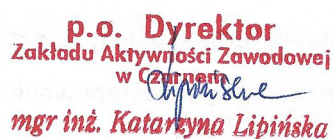 p.o. Dyrektor
Zakładu Aktywności Zawodowej
w Czarnem
mgr inż. Katarzyna Lipińska